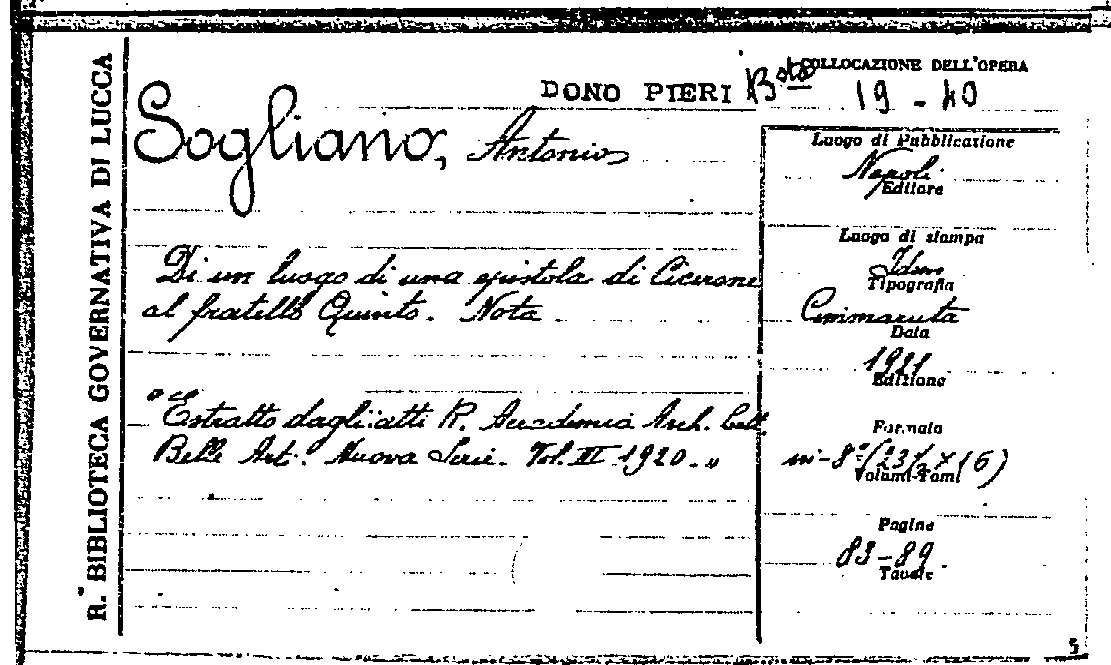 R.ᵃ BIBLIOTECA GOVERNATIVA DI LUCCA
DONO PIERI Bsta
COLLOCAZIONE DELL'OPERA
19 - 40
Sogliano, Antonio
Di un luogo di una epistola di Cicerone
al fratello Quinto. Nota
"Estratto dagli atti R. Accademia Arch. Lett.
Belle Arti. Nuova Serie. Vol. III 1920. "
Luogo di Pubblicazione
Napoli
Editore
Luogo di stampa
Idem
Tipografia
Cimmaruta
Data
1921
Edizione
Formato
in-8° (23½ x 16)
Volumi-Tomi
Pagine
83-89
Tavole
5